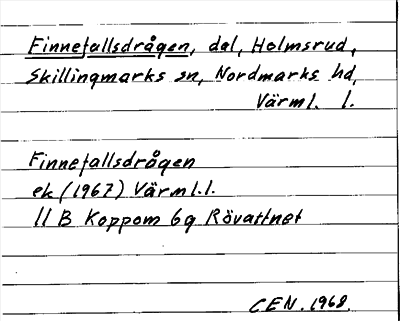 Finnefallsdrågen, del, Holmsrud,
Skillingmarks sn, Nordmarks hd,
Värml. l.
Finnefallsdrågen
ek (1967) Värml.l.
11 B Koppom 6g Rövattnet
CEN. 1968.